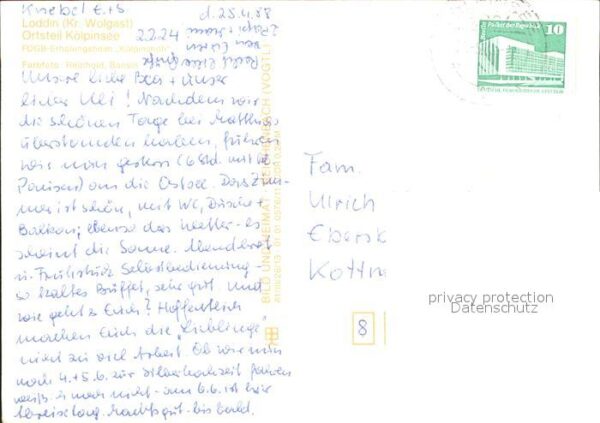 Knebel E.+S.
d. 25.4.88
Loddin (Kr. Wolgast)
Ortsteil Kölpinsee
2.2.24
FDGB-Erholungsheim „Kölpinshöh“
Farbfoto: Reichgut, Bansin
Unsere liebe Bea + unser
lieber Uli! Nachdem wir
die schönen Tage bei Matthias
überstanden haben, fuhren
wir nun gestern (6 Std. mit
Pausen) an die Ostsee. Das Zim-
mer ist schön, mit WC, Dusche +
Balkon; ebenso das Wetter - es
scheint die Sonne. Abendbrot
u. Frühstück Selbstbedienung -
so kaltes Büffet, sehr gut und
wie geht's Euch? Hoffentlich
machen Euch die „Lieblinge“
nicht zu viel Arbeit. Ob wir nun
noch 4.+5.6. zur Silberhochzeit fahren
weiß ich noch nicht - am 6.6. ist hier
Abreisetag. Macht's gut - bis bald.
BILD UND HEIMAT REICHENBACH (VOGTL)
10
Fam.
Ulrich
Ebersb
Kottm
8
privacy protection
Datenschutz